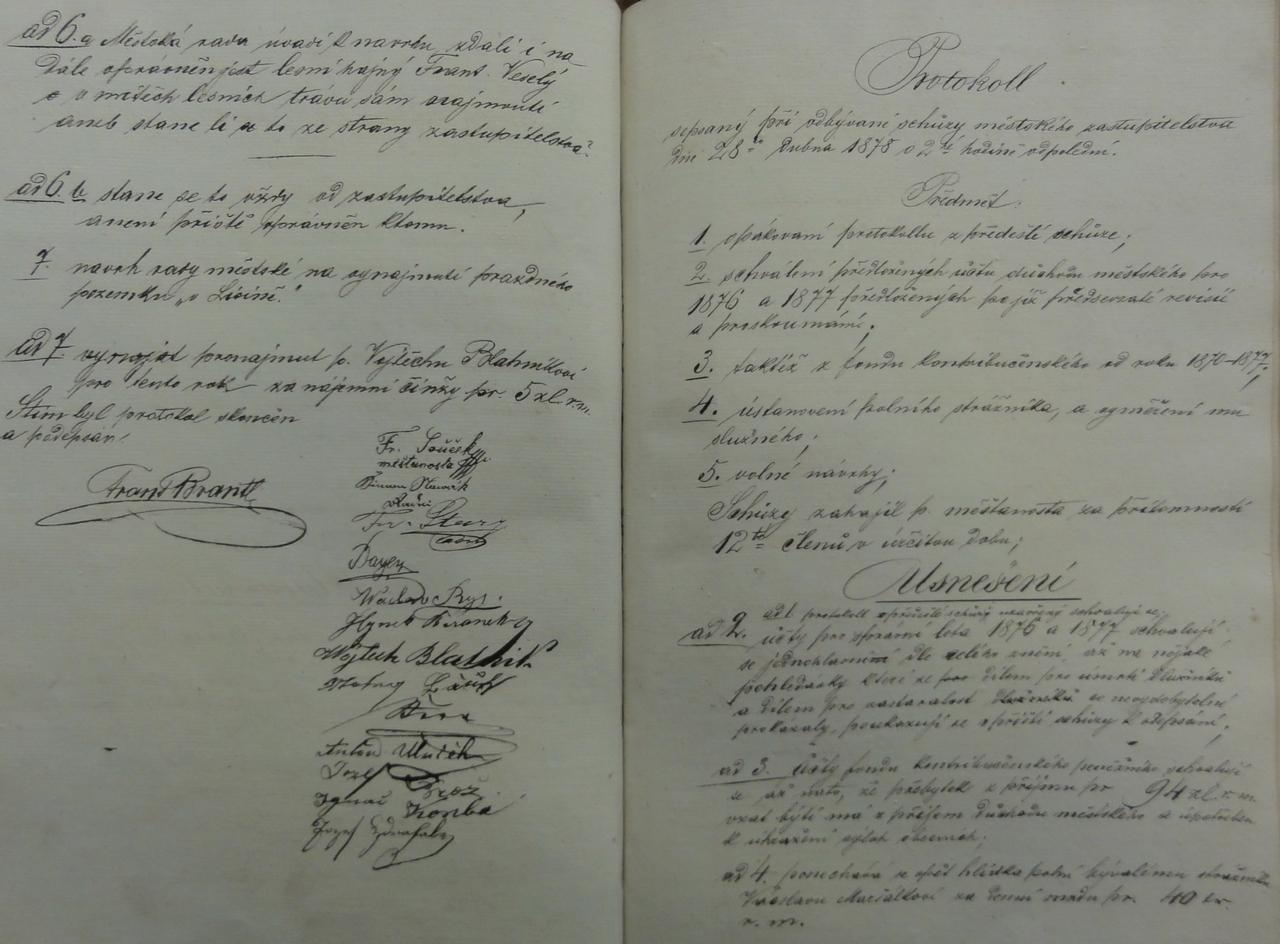 ad 6. a Městská rada uvadí k navrhu, zdali i na
dále oprávněn jest lesní hajný Frant. Veselý
v mítěch lesních trávu sám
aneb stane li se to ze strany zastupitelstva?
ad 6. b. stane se to vždy od zastupitelstva,
a není příště oprávněn ktomu.
7. navrh rady městské na vynajmutí prazdného
pozemku „v Liščině."
ad 7. pronajmut p. Vojtěchu Blahníkovi
pro tento rok za najemní činži pr. 5 zl. r. m.
Stím byl protokol skončen
a podepsán.
Frant Brantl
Fr. Souček
měšťanosta
Simon Nowák
Radní
Fr. Stary
Bayer
Waclaw Rys.
Hynek
Wojtech Blatnik
Anton
Josef Brož
Ignac
Josef
Protokoll
sepsaný při odbývané schůzy městského zastupitelstva
dne 28ho Dubna 1878 o 2té hodině odpolední.
Předmět:
1. opakovaní protokollu z předešlé schůze;
2. schválení předložených účtu důchodu městského pro
1876 a 1877 předložených po již předsevzaté revisií
a proskoumání;
3. taktéž z fondu kontribučenského od roku 1870-1877;
4. ústanovení polního strážníka, a vyměření mu
služného;
5. volné návrhy;
Schůzy zahajil p. měšťanosta za přítomnosti
12ti členů v určitou dobu;
Usnešení
ad 1. protokoll z předešlé schůzy schvaluje se.
ad 2. účty pro zpravní léta 1876 a 1877 schvalují
se jednohlasně dle celého znění, až na nějaké
pohledávky které se dílem pro úmrtí dlužníků
a dílem pro zastaralost co nevydobytelné
prokázaly, poukazují se v příští schůzy k odepsání;
ad 3. Účty fondu kontribučenského schvalují
se až nato, že přebytek z příjmu pr 94 zl. r. m.
vzat býti má v příjem Důchodu městského a upotřeben
k uhražení výloh obecních;
ad 4. ponechává se opět hlídka polní bývalému strážníku
Maršálkovi za denní mzdu pr. 40 kr.
r. m.